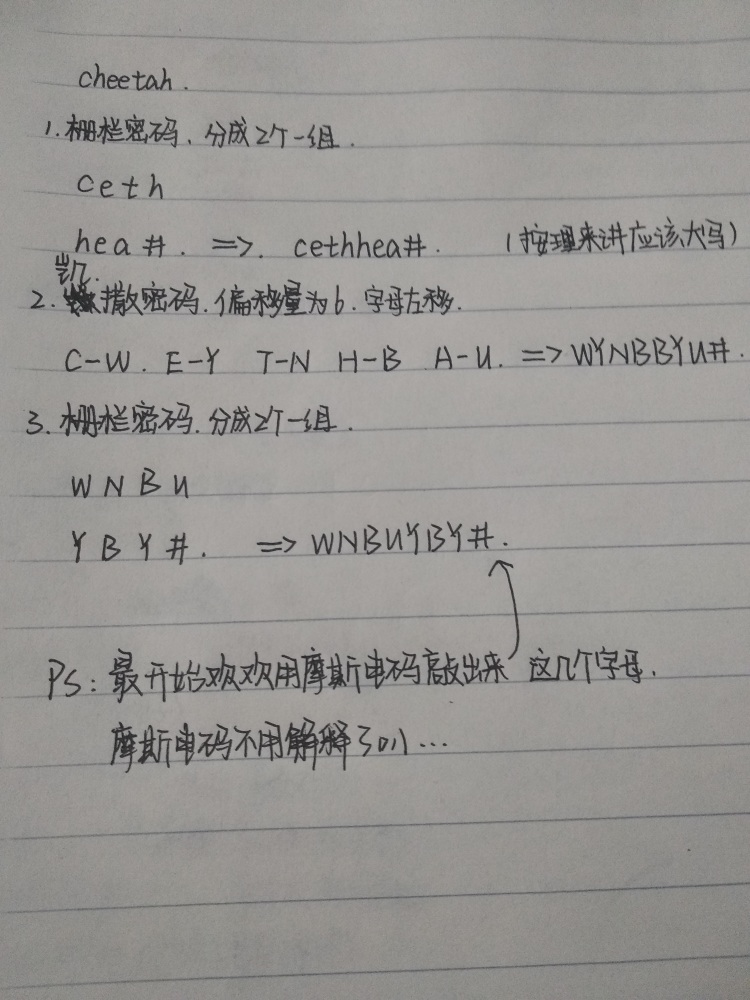 cheetah.
1.栅栏密码.分成2个一组.
ceth
hea#. => cethhea#. (按理来讲应该大写)
凯
2.撒密码.偏移量为6.字母左移.
C-W. E-Y T-N H-B A-U. => WYNBBYU#.
3.栅栏密码.分成2个一组.
WNBU
YBY#. => WNBUYBY#.
PS:最开始欢欢用摩斯电码敲出来 这几个字母.
摩斯电码不用解释了叭...